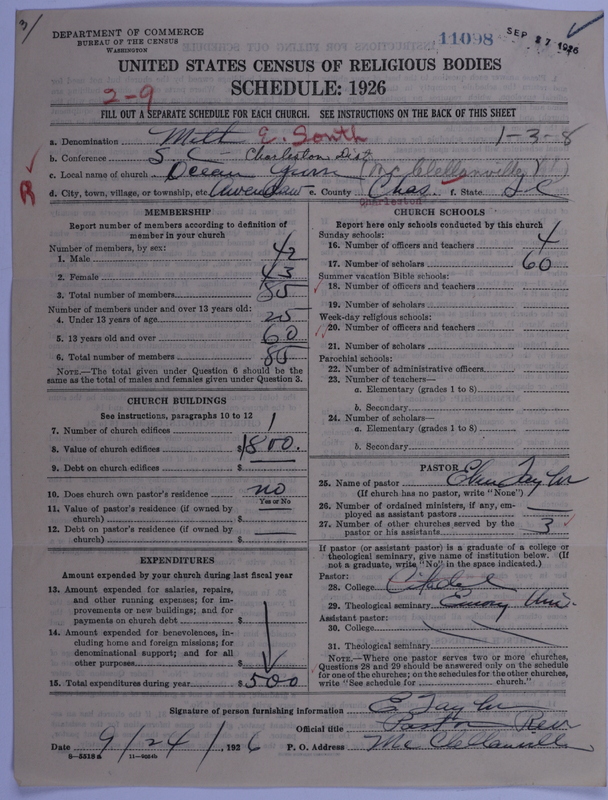 3/
DEPARTMENT OF COMMERCE
BUREAU OF THE CENSUS
WASHINGTON
11098
SEP 27 1926
UNITED STATES CENSUS OF RELIGIOUS BODIES
SCHEDULE: 1926
2-9
FILL OUT A SEPARATE SCHEDULE FOR EACH CHURCH. SEE INSTRUCTIONS ON THE BACK OF THIS SHEET
a. Denomination Meth E. South 1-3-8
b. Conference S C - Charleston Dist
c. Local name of church Ocean (McClellanville)
R d. City, town, village, or township, etc. Awendaw e. County Chas. f. State S C
Charleston
MEMBERSHIP
Report number of members according to definition of member in your church
Number of members, by sex:
1. Male 42
2. Female 43
3. Total number of members 85
Number of members under and over 13 years old:
4. Under 13 years of age 25
5. 13 years old and over 60
6. Total number of members 85
NOTE.—The total given under Question 6 should be the
same as the total of males and females given under Question 3.
CHURCH BUILDINGS
See instructions, paragraphs 10 to 12
7. Number of church edifices 1
8. Value of church edifices $1800.
9. Debt on church edifices $
10. Does church own pastor's residence no
Yes or No
11. Value of pastor's residence (if owned by
church) $
12. Debt on pastor's residence (if owned by
church) $
EXPENDITURES
Amount expended by your church during last fiscal year
13. Amount expended for salaries, repairs,
and other running expenses; for im-
provements or new buildings; and for
payments on church debt $
14. Amount expended for benevolences, in-
cluding home and foreign missions; for
denominational support; and for all
other purposes
15. Total expenditures during year $500
CHURCH SCHOOLS
Report here only schools conducted by this church
Sunday schools:
16. Number of officers and teachers 4
17. Number of scholars 60
Summer vacation Bible schools:
18. Number of officers and teachers
19. Number of scholars
Week-day religious schools:
20. Number of officers and teachers
21. Number of scholars
Parochial schools:
22. Number of administrative officers
23. Number of teachers—
a. Elementary (grades 1 to 8)
b. Secondary
24. Number of scholars—
a. Elementary (grades 1 to 8)
b. Secondary
PASTOR
25. Name of pastor Eben Taylor
(If church has no pastor, write "None")
26. Number of ordained ministers, if any, em-
ployed as assistant pastors
27. Number of other churches served by the
pastor or his assistants 3
If pastor (or assistant pastor) is a graduate of a college or
theological seminary, give name of institution below. (If
not a graduate, write "No" in the space indicated.)
Pastor:
28. College Citadel
29. Theological seminary Emory Uni.
Assistant pastor:
30. College
31. Theological seminary
NOTE.—Where one pastor serves two or more churches,
Questions 28 and 29 should be answered only on the schedule
for one of the churches; on the schedules for the other churches,
write "See schedule for church."
Signature of person furnishing information E Taylor
Official title Pastor
Date 9/24/, 1926 P. O. Address McClellanville
8-5519a 11-9054b